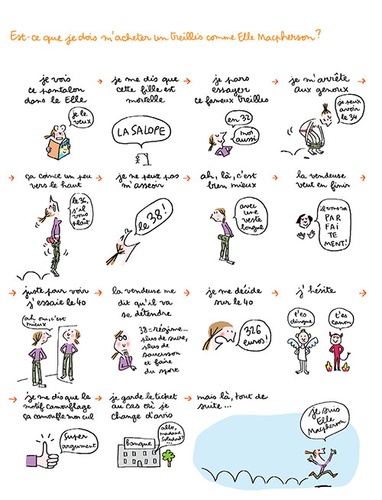 Est-ce que je dois m'acheter un treillis comme Elle Macpherson?
→ je vois
ce pantalon
dans le Elle
je le
veux
→ je me dis que
cette fille est
mortelle
LA SALOPE
→ je pars
essayer
ce fameux treillis
en 32
moi
aussi
→ je m'arrête
aux genoux
je peux
avoir
le 34
→ ça coince un peu
vers le haut
le 36,
s'il
vous
plaît
→ je ne peux pas
m'asseoir
le 38!
→ ah, là, c'est
bien mieux
avec
une veste
longue
→ la vendeuse
veut en finir
PAR
FAI
TE
MENT!
→ juste pour voir
j'essaie le 40
ah oui, c'est
mieux
→ la vendeuse me
dit qu'il va
se détendre
38 = régime...
plus de sucre,
plus de
saucisson
et faire
du sport
→ je me décide
sur le 40
326
euros!
→ j'hésite
t'es
dingue
t'es
canon
→ je me dis que le
motif camouflage
ça camoufle mon cul
super
argument
→ je garde le ticket
au cas où je
change d'avis
Banque
allo,
madame
→ mais là, tout de
suite...
je suis
Elle
Macpherson